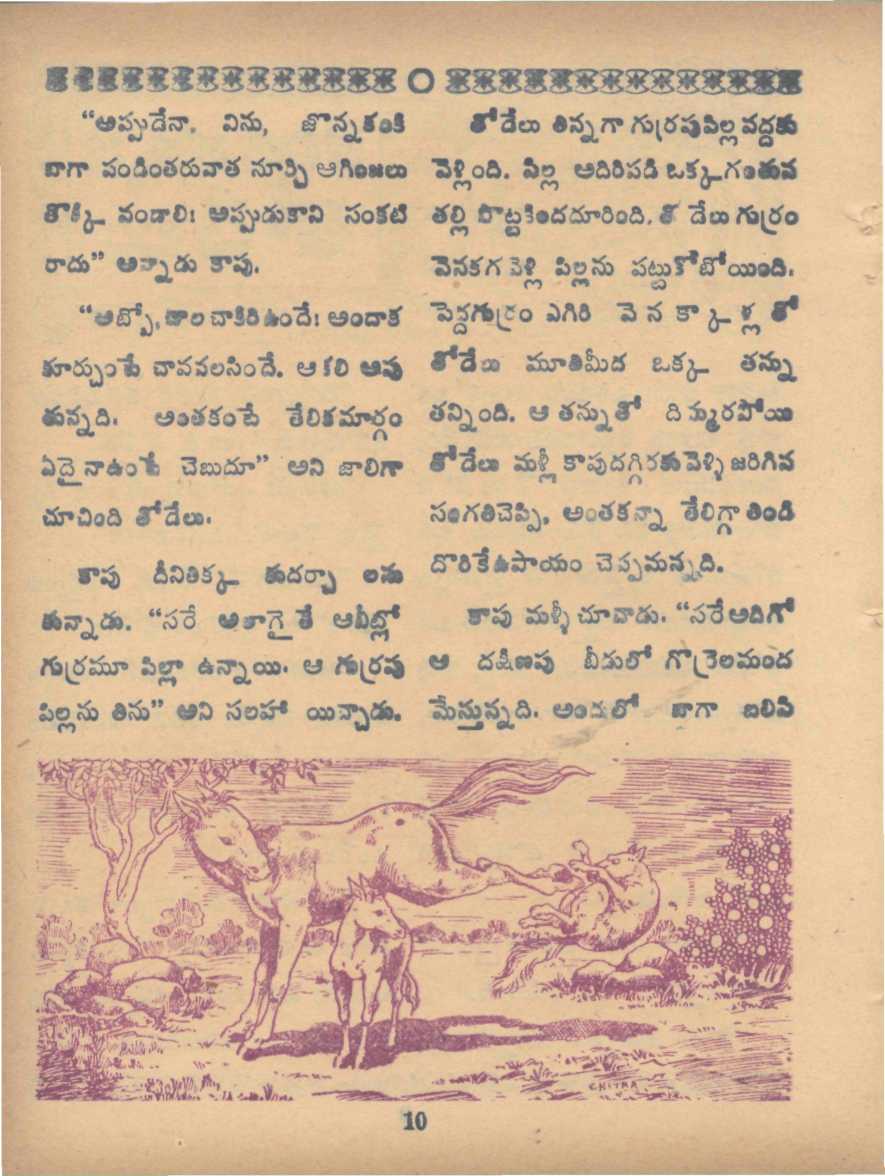 “అప్పుడేనా. విను, జొన్నకంకి
బాగా పండింతరువాత నూర్చి ఆగింజలు
తొక్కి వండాలి! అప్పుడుకాని సంకటి
రాదు” అన్నాడు కాపు.
“అబ్బో, చాల చాకిరిఉందే! అందాక
కూర్చుంటే చావవలసిందే. ఆకలి ఆవు
తున్నది. అంతకంటే తేలికమార్గం
ఏదైనాఉంటే చెబుదూ” అని జాలిగా
చూచింది తోడేలు.
కాపు దీనితిక్క కుదర్చా లను
కున్నాడు. “సరే అలాగైతే ఆవీట్లో
గుర్రమూ పిల్లా ఉన్నాయి. ఆ గుర్రపు
పిల్లను తిను” అని సలహా యిచ్చాడు.
తోడేలు తిన్నగా గుర్రపుపిల్లవద్దకు
వెళ్లింది. పిల్ల అదిరిపడి ఒక్కగంతువ
తల్లి పొట్టకిందదూరింది. తోడేలు గుర్రం
వెనకగ వెళ్లి పిల్లను పట్టుకోబోయింది.
పెద్దగుర్రం ఎగిరి వెనకాళ్లతో
తోడేలు మూతిమీద ఒక్క తన్ను
తన్నింది. ఆ తన్నుతో దిమ్మురపోయి
తోడేలు మళ్లీ కాపుదగ్గిరకువెళ్ళి జరిగిన
సంగతిచెప్పి, అంతకన్నా తేలిగ్గా తిండి
దొరికేఉపాయం చెప్పమన్నది.
కాపు మళ్ళీ చూచాడు. “సరే అదిగో
ఆ దక్షిణపు బీడులో గొర్రెలమంద
మేస్తున్నది. అందులో బాగా బలిసి
CHITRA
10